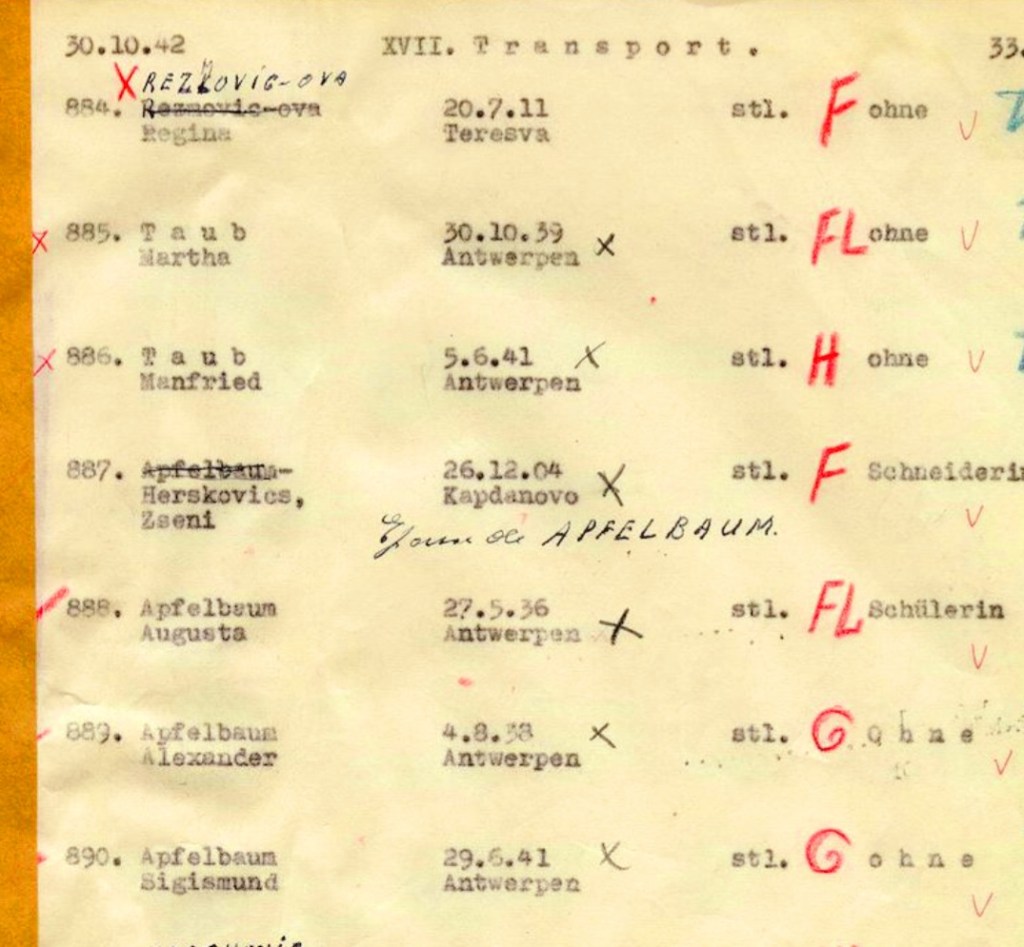 30.10.42 XVII. Transport. 33.
X REZKOVIC-OVA
884. Rezmovic-ova 20.7.11 stl. F ohne
Regina Teresva
x 885. Taub 30.10.39 x stl. FL ohne
Martha Antwerpen
x 886. Taub 5.6.41 x stl. H ohne
Manfried Antwerpen
887. Apfelbaum- 26.12.04 x stl. F Schneiderin
Herskovics, Kapdanovo
Zseni
APFELBAUM.
888. Apfelbaum 27.5.36 x stl. FL Schülerin
Augusta Antwerpen
889. Apfelbaum 4.8.38 x stl. G ohne
Alexander Antwerpen
890. Apfelbaum 29.6.41 x stl. G ohne
Sigismund Antwerpen